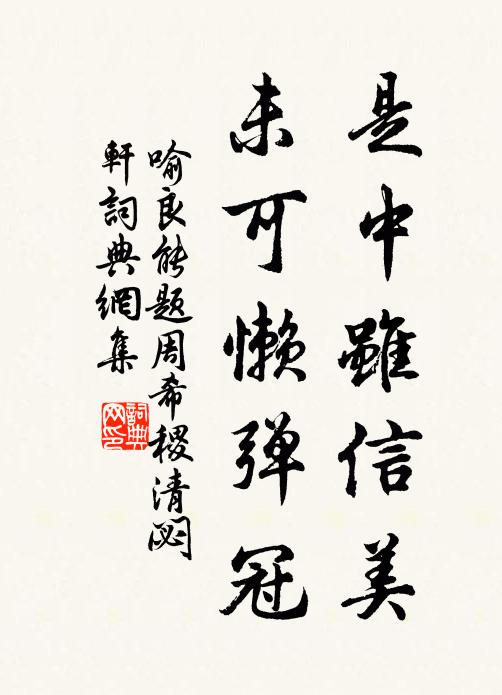 是中雖信美
未可懒弹冠
喻良能题周希稷清閟
軒詞典網集
詞典网印